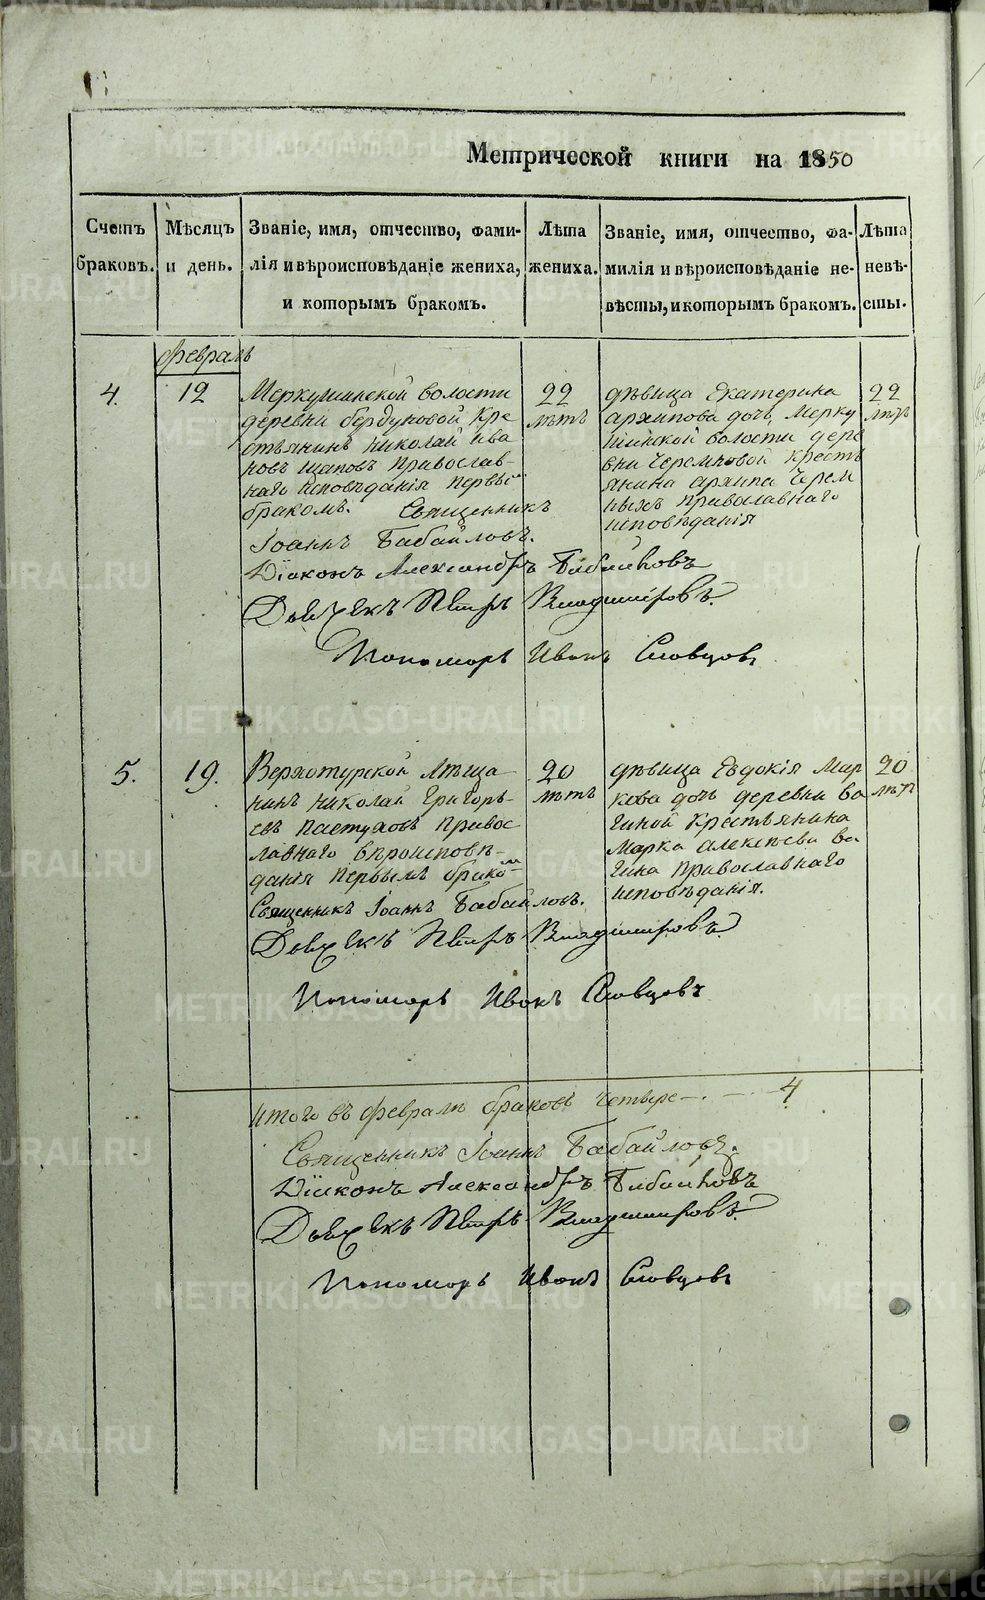 Метрической книги на 1850
Счетъ браковъ.
Мѣсяцъ и день.
Званіе, имя, отчество, фами-
лія и вѣроисповѣданіе жениха,
и которымъ бракомъ.
Лѣта жениха.
Званіе, имя, отчество, фа-
милія и вѣроисповѣданіе не-
вѣсты, и которымъ бракомъ.
Лѣта невѣ-
сты.
февраль
4.
12
Меркушинской волости
деревни бердуковой кре
стьянинъ николай ива
новъ щаповъ православ-
наго исповѣданія первы
бракомъ. Священникъ
Іоаннъ Бабайловъ.
Діаконъ Александръ Бабайловъ
Дьячекъ Петръ Владиміровъ.
Пономарь Иванъ Словцовъ
22
лѣтъ
дѣвица Екатерина
архипова дочь, мерку
шинской волости дере
вни черемновой кресть
янина архипа черем
ныхъ православнаго
исповѣданія
22
лѣтъ
5.
19.
Верхотурской Мѣща
нинъ николай Григорь-
евъ пастуховъ правос
лавнаго вѣроисповѣ-
данія первымъ брако-м
Священникъ Іоаннъ Бабайловъ.
Дьячекъ Петръ Владиміровъ
Пономарь Иванъ Словцовъ
20
лѣтъ
дѣвица Евдокія Мар
кова дочь деревни ва
гиной крестьянина
Марка алексѣева ва
гина православнаго
исповѣданія.
20
лѣтъ
итого въ февралѣ браковъ четыре 4
Священникъ Іоаннъ Бабайловъ.
Діаконъ Александръ Бабайловъ
Дьячекъ Петръ Владиміровъ.
Пономарь Иванъ Словцовъ
METRIKI.GASO-URAL.RU